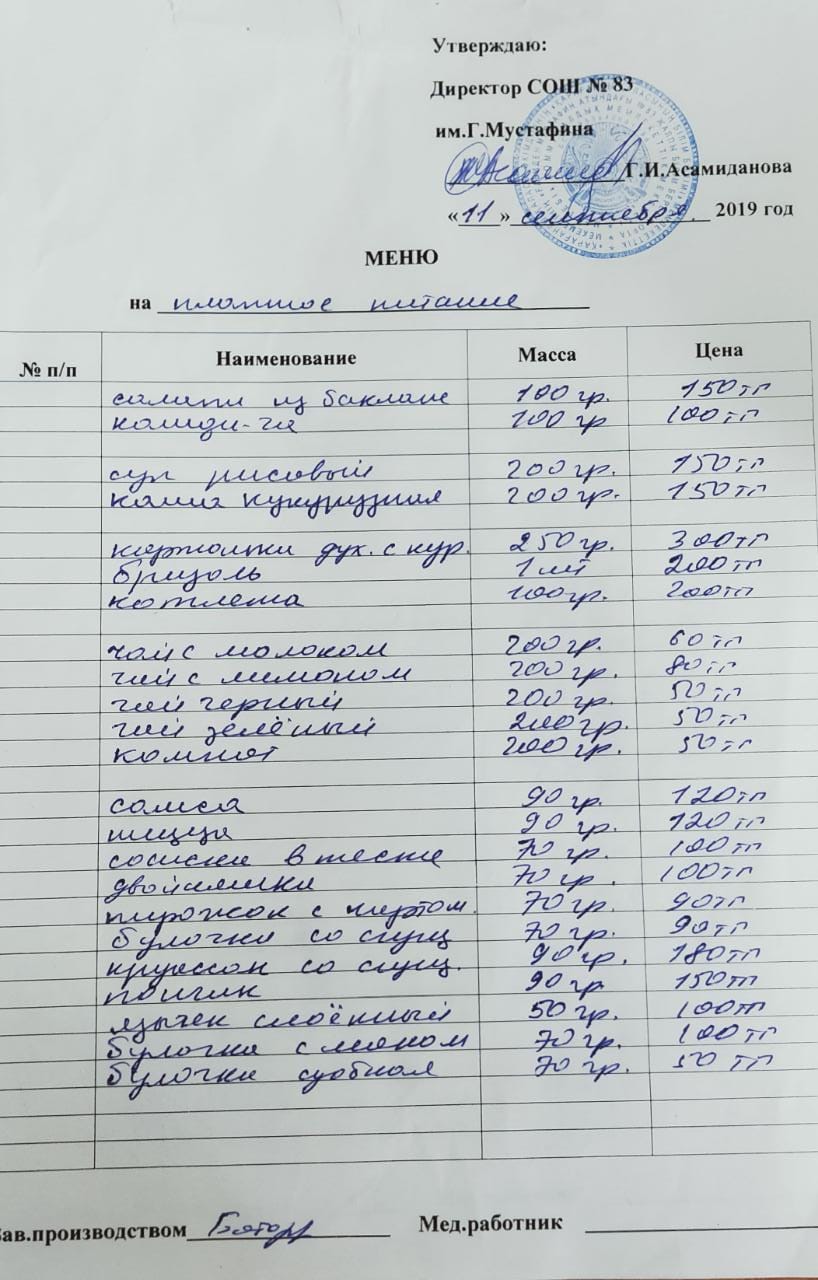 Утверждаю:
Директор СОШ № 83
им.Г.Мустафина
Г.И.Асамиданова
«11» сентября 2019 год
МЕНЮ
на платное питание
№ п/п Наименование Масса Цена
салаты из баклаж 100 гр. 150 тг
камди-ча 100 гр 100 тг
суп рисовый 200 гр. 150 тг
каша кукурузная 200 гр. 150 тг
картошка туш. с кур. 250 гр. 300 тг
бризоль 1 шт 200 тг
котлета 100 гр. 200 тг
чай с молоком 200 гр. 60 тг
чай с лимоном 200 гр. 80 тг
чай черный 200 гр. 50 тг
чай зелёный 200 гр. 50 тг
компот 200 гр. 50 тг
самса 90 гр. 120 тг
пицца 90 гр. 120 тг
сосиска в тесте 70 гр. 100 тг
двойняшка 70 гр. 100 тг
пирожок с картом. 70 гр. 90 тг
булочка со сгущ 70 гр. 90 тг
круассан со сгущ. 90 гр. 180 тг
пончик 90 гр 150 тг
язычек слоённый 50 гр. 100 тг
булочка с маком 70 гр. 100 тг
булочка сдобная 70 гр. 50 тг
Зав.производством Мед.работник